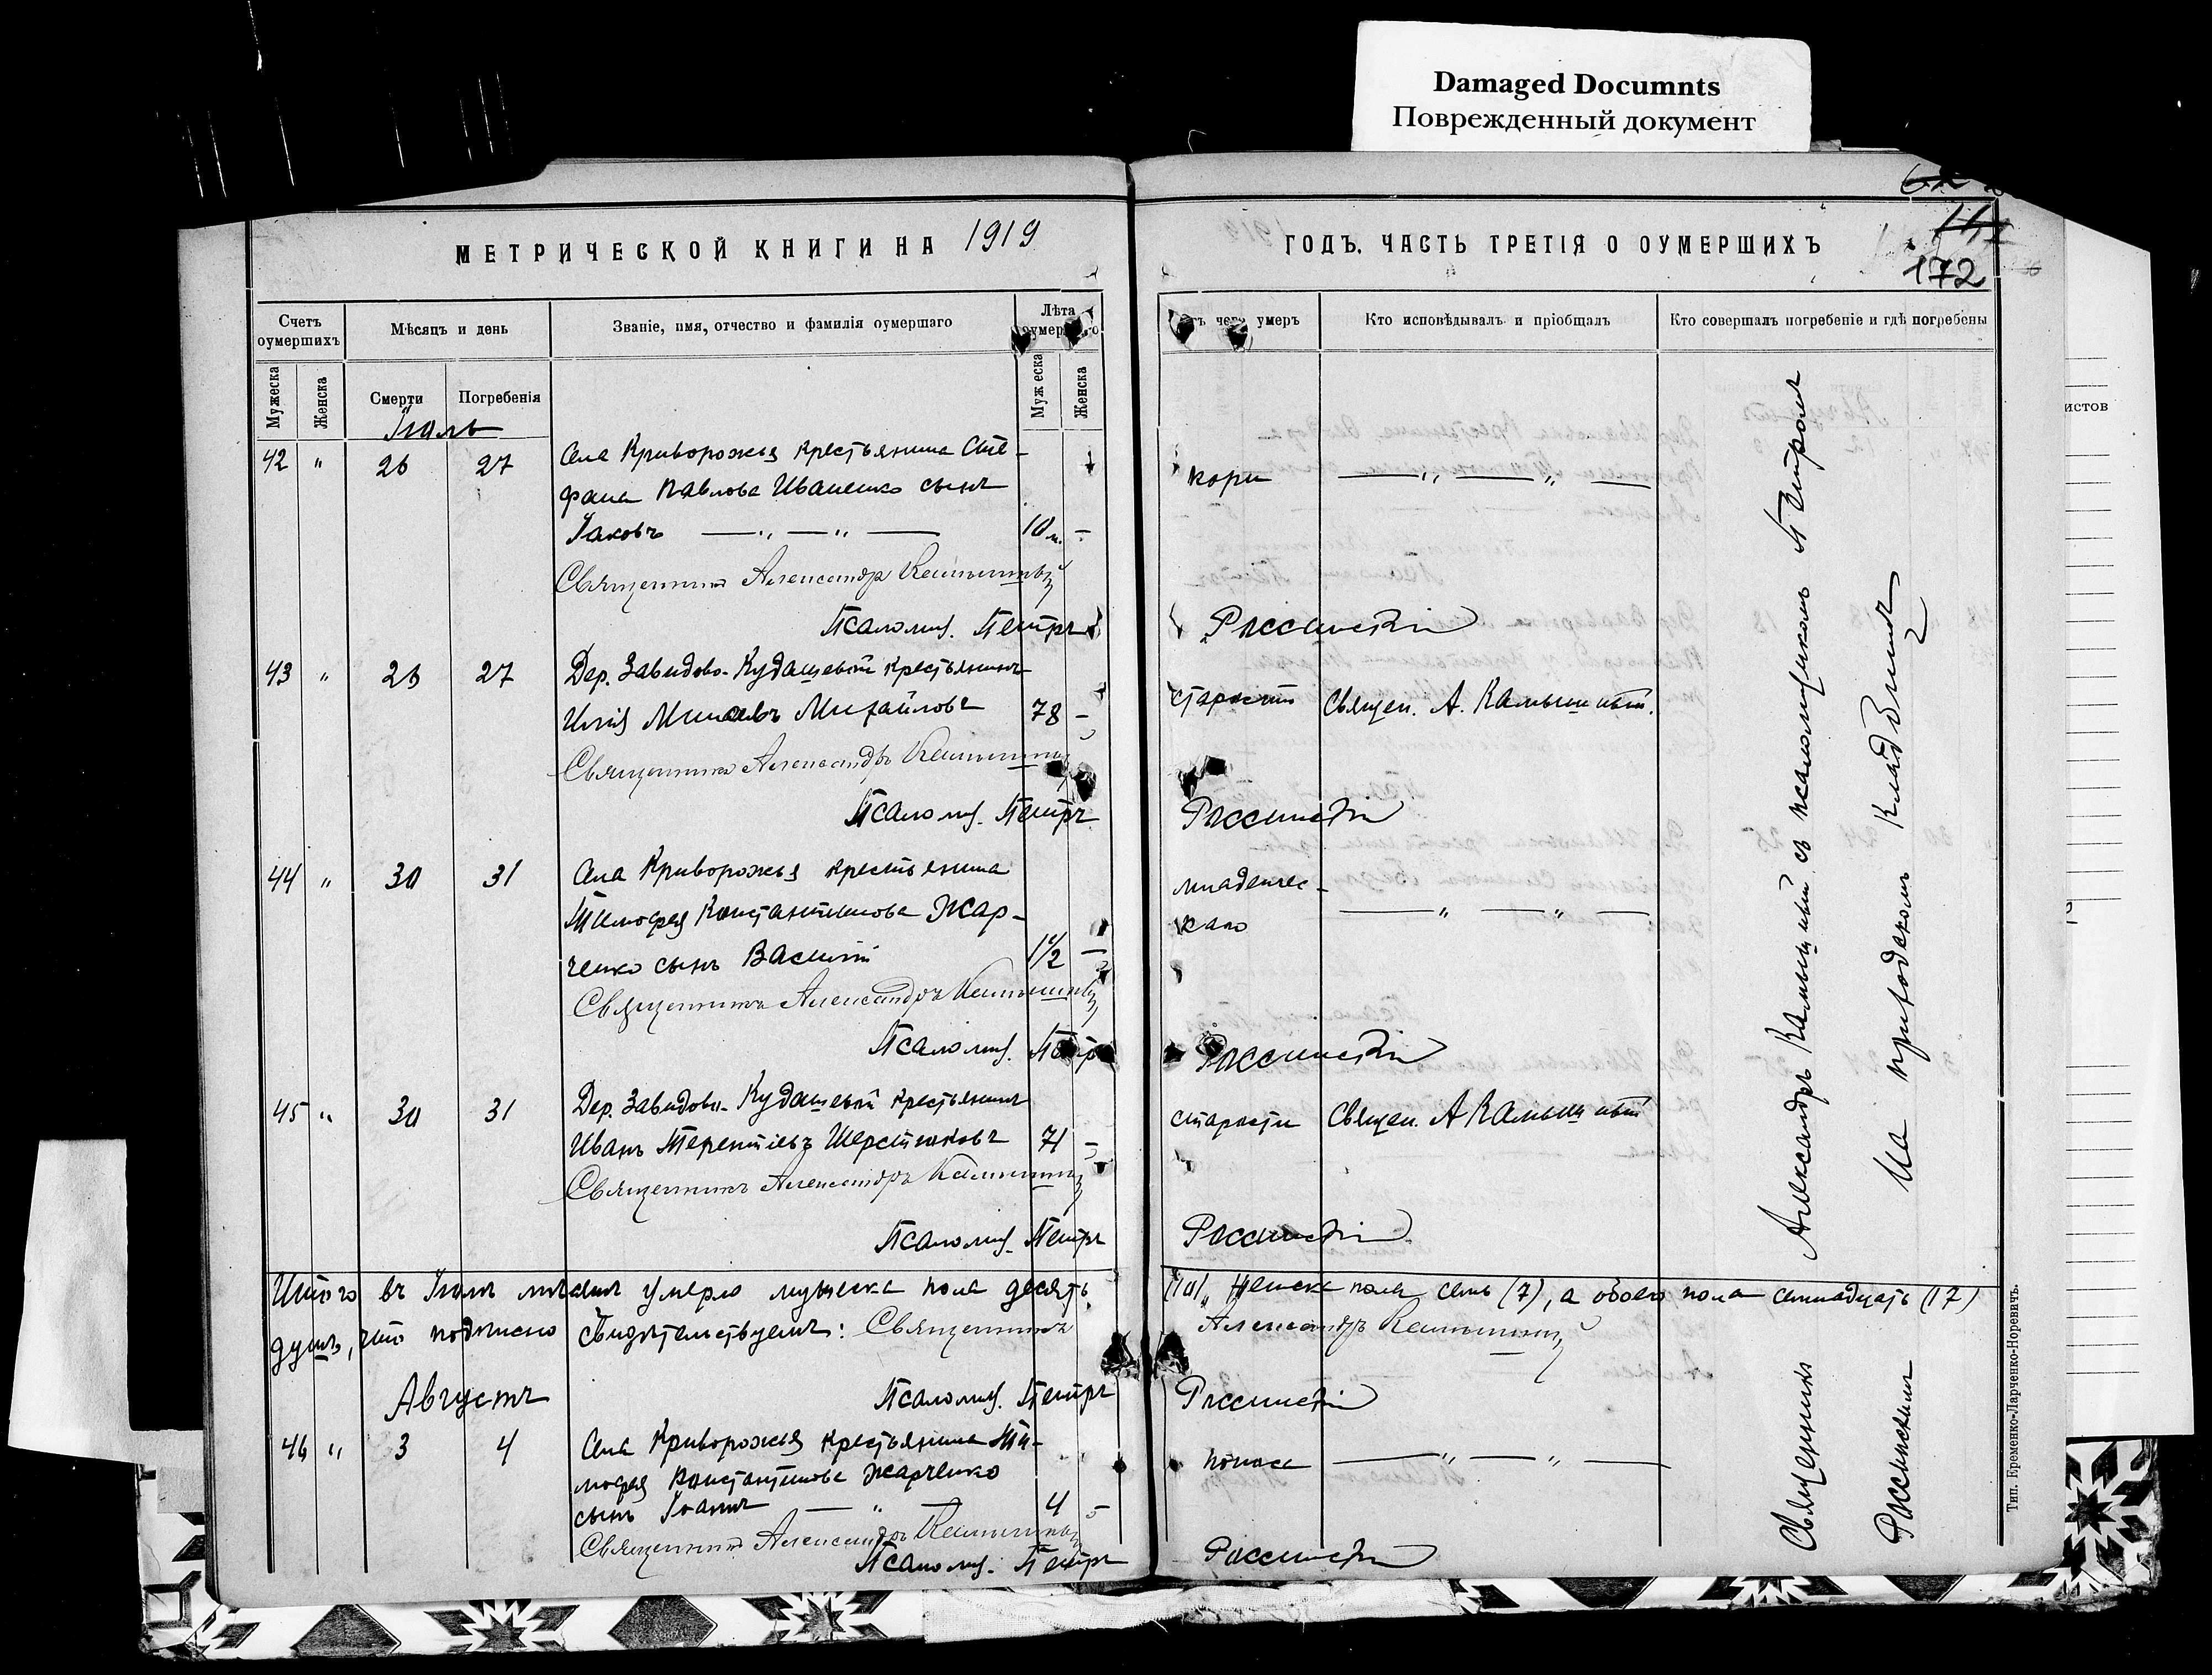 Damaged Documnts
Поврежденный документ
172
МЕТРИЧЕСКОЙ КНИГИ НА 1919
ГОДЪ. ЧАСТЬ ТРЕТІЯ О ОУМЕРШИХЪ
Счетъ оумершихъ
Мѣсяцъ и день
Званіе, имя, отчество и фамилія оумершаго
Лѣта
умеръ
Кто исповѣдывалъ и пріобщалъ
Кто совершалъ погребеніе и гдѣ погребены
Мужеска
Женска
Смерти
Погребенія
Мужеска
Женска
Іюль
42 " 26 27 Села Криворожья крестьянина Сте-
фана Павлова Иваненко сынъ
Іаковъ — " — " — 10 м. -
кори — " — " —
Священникъ Александръ Камышный
Псаломщ. Петръ Россинскій
43 " 26 27 Дер. Завидово-Кудашевой крестьянинъ
Илія Михайловъ 78 -
старости Священ. А. Камышный.
Священникъ Александръ Камышный
Псаломщ. Петръ Россинскій
44 " 30 31 Села Криворожья крестьянина
Тимофея Константинова Жар-
ченко сынъ Василій 1 1/2 —
младенчес-
каго — " — " —
Священникъ Александръ Камышный
Псаломщ. Петръ Россинскій
45 " 30 31 Дер. Завидово-Кудашевой крестьянинъ
Иванъ Терентіевъ Шерстюковъ 71 -
старости Священ. А Камышный
Священникъ Александръ Камышный
Псаломщ. Петръ Россинскій
Итого въ Іюлѣ мѣсяцѣ умерло мужеска пола десять (10), женска пола семь (7), а обоего пола семнадцать (17)
душъ, что подписью свидѣтельствуемъ: Священникъ Александръ Камышный
Псаломщ. Петръ Россинскій
Августъ
46 " 3 4 Села Криворожья крестьянина Ти-
мофея Константинова Жарченко
сынъ Іоаннъ — " — 4 -
поноса — " — " —
Священникъ Александръ Камышный
Псаломщ. Петръ Россинскій
Священникъ Александръ Камышный съ псаломщикомъ Петромъ
Россинскимъ На приходскомъ кладбищѣ
Тип. Еременко-Ларченко-Норевичъ.
истов